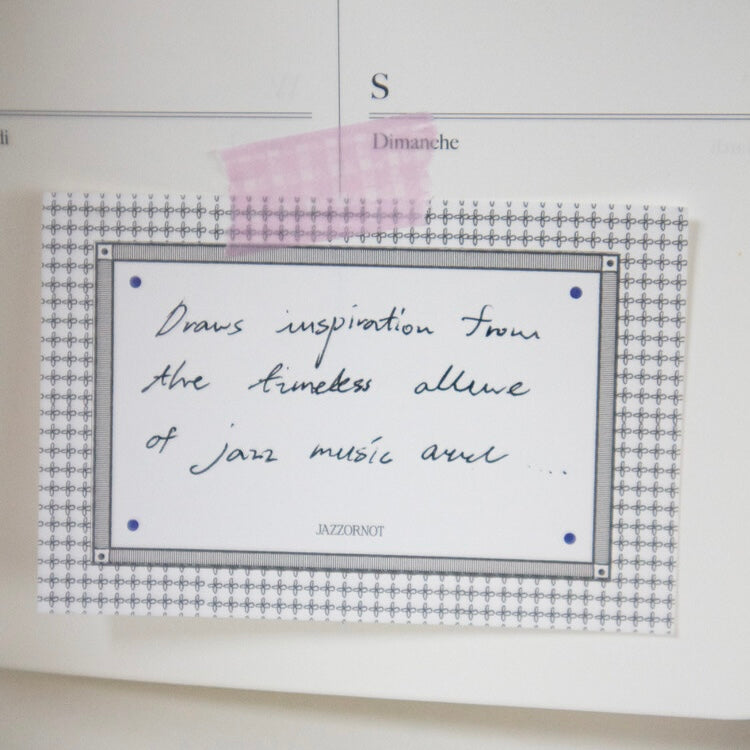 S
di
Dimanche
Draws inspiration from
the timeless allure
of jazz music and ....
JAZZORNOT